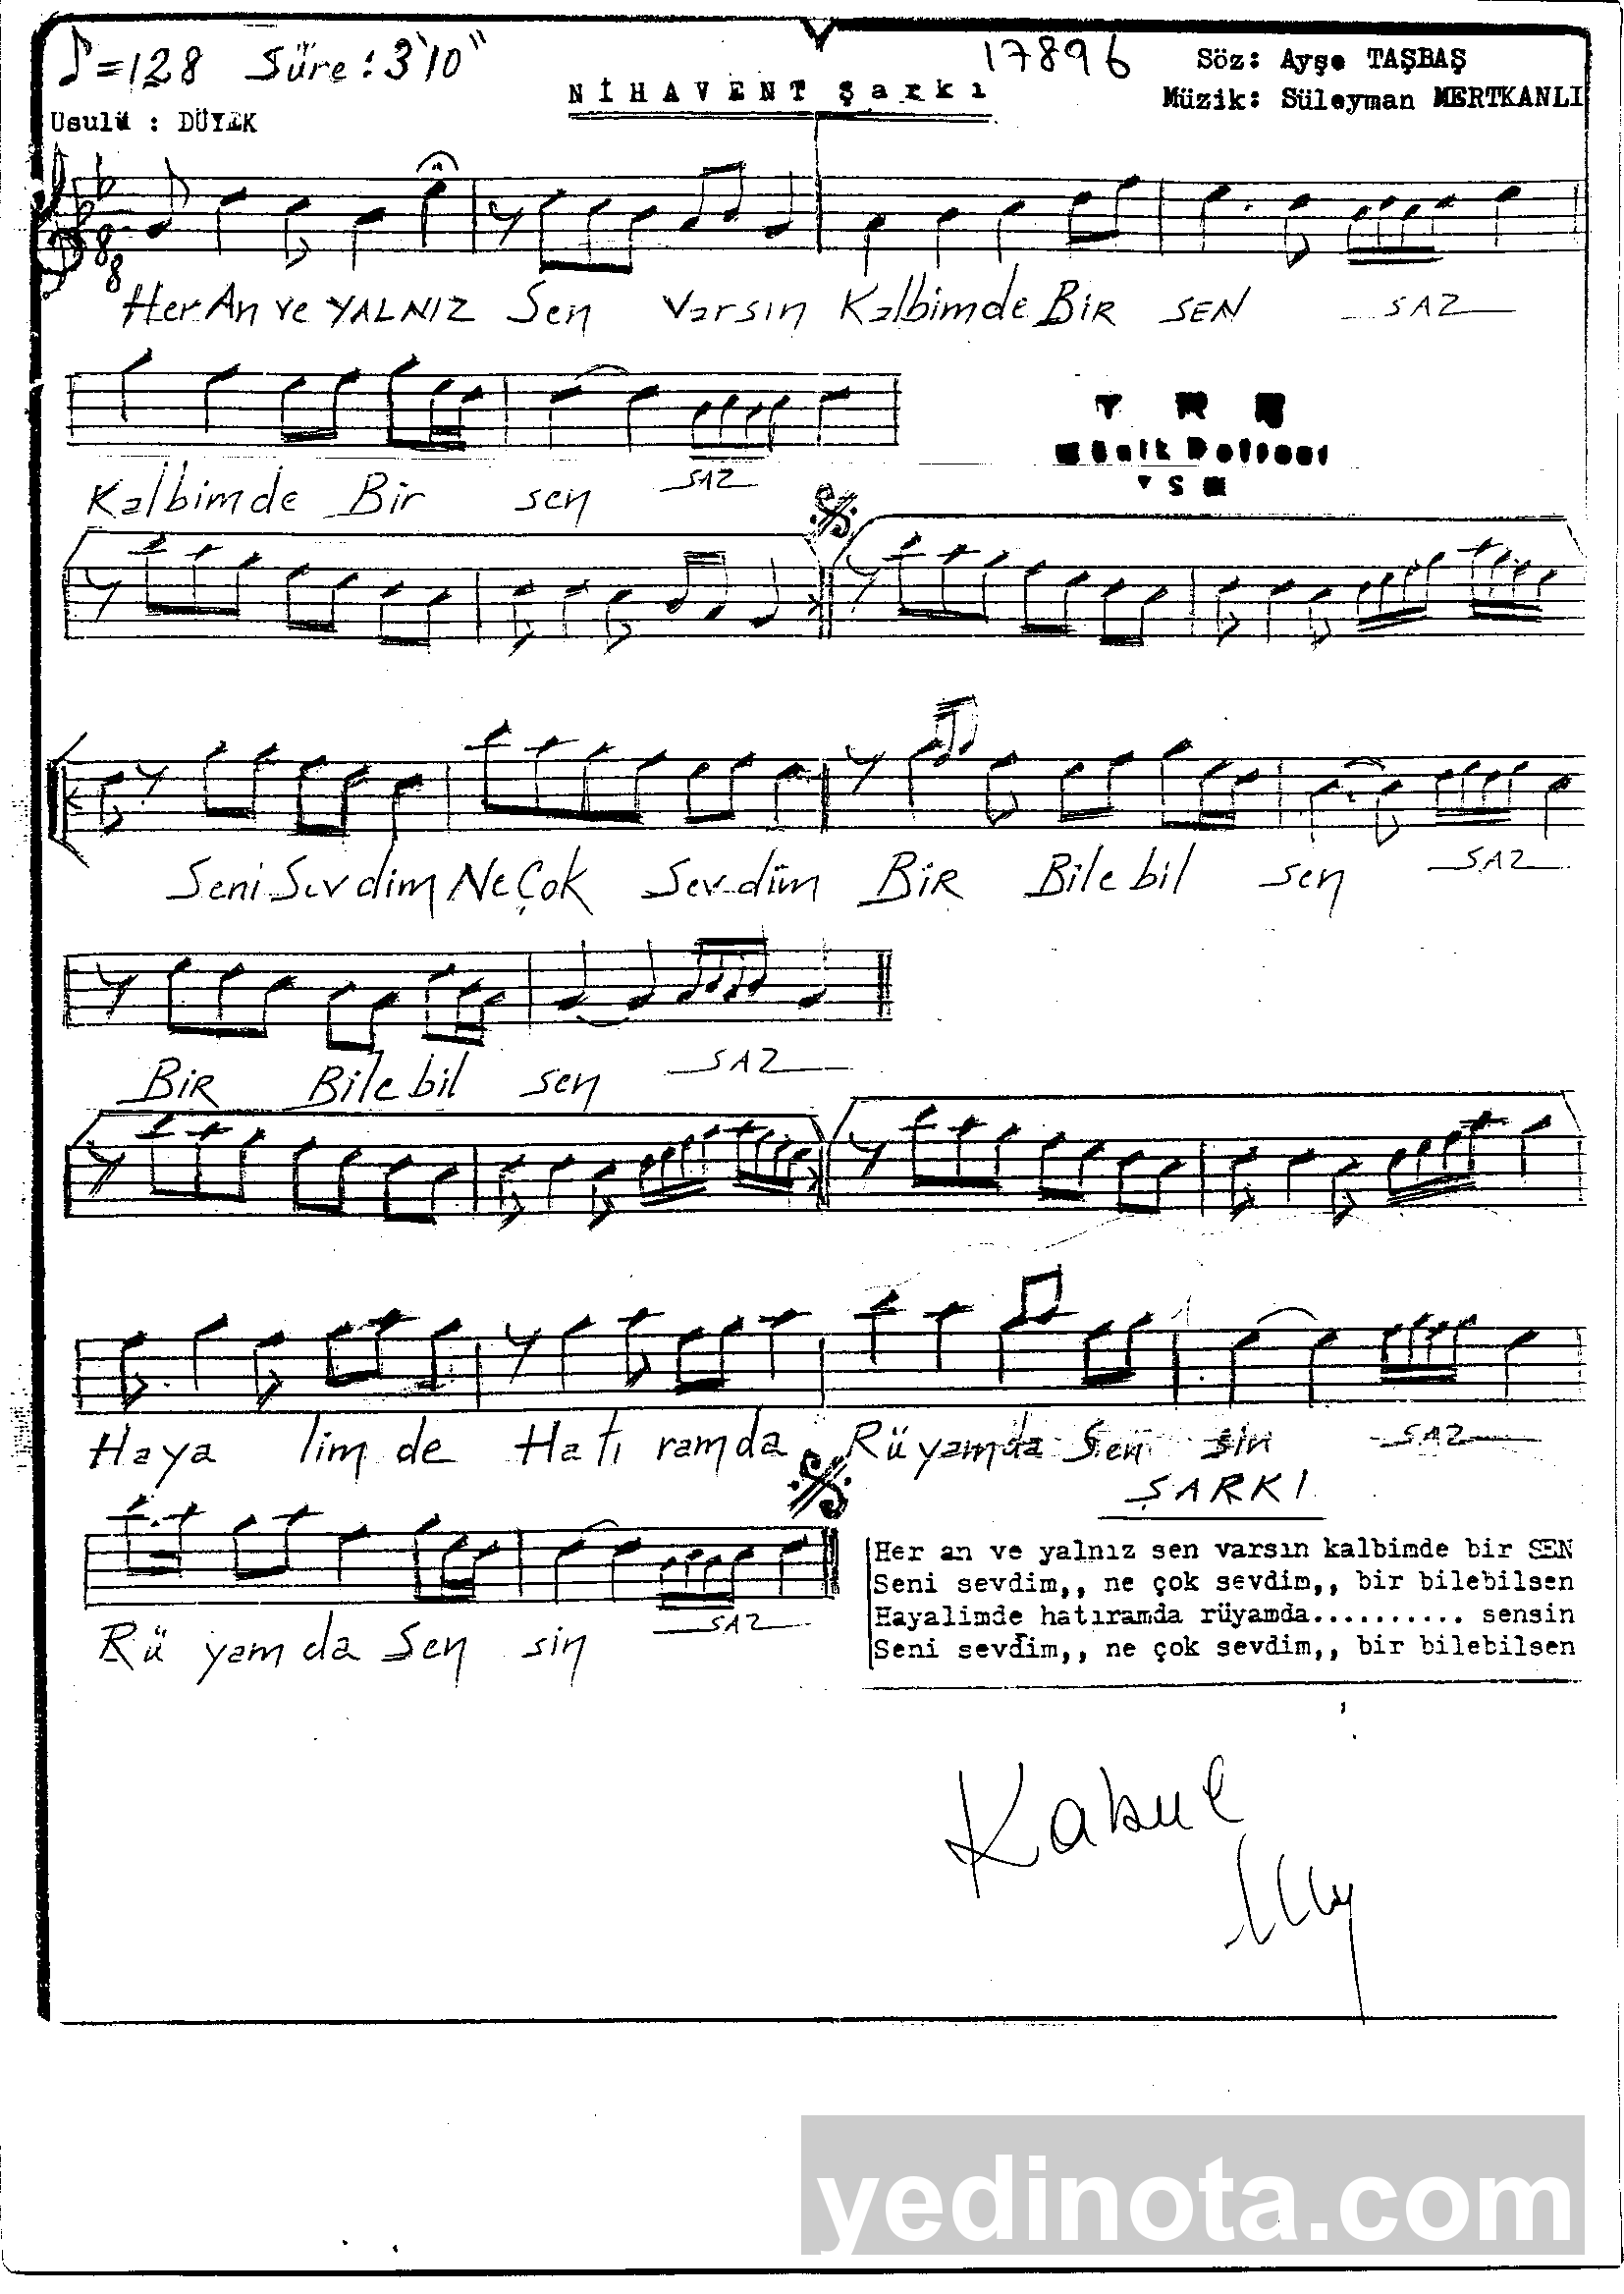 ♪=128 Süre: 3'10" 17896 Söz: Ayşe TAŞBAŞ
NİHAVENT Şarkı Müzik: Süleyman MERTKANLI
Usulü : DÜYEK
8
8
Her An ve YALNIZ Sen Varsın Kalbimde BİR SEN SAZ
Kalbimde Bir sen SAZ
T R T
Müzik Dairesi
T S M
Seni Sevdim Ne Çok Sevdim BİR Bilebil sen SAZ
BİR Bilebil sen SAZ
Haya lim de Hatı ramda Rüyamda Sen sin SAZ
Rü yam da Sen sin SAZ
ŞARKI
Her an ve yalnız sen varsın kalbimde bir SEN
Seni sevdim,, ne çok sevdim,, bir bilebilsen
Hayalimde hatıramda rüyamda.......... sensin
Seni sevdim,, ne çok sevdim,, bir bilebilsen
Kabul
yedinota.com